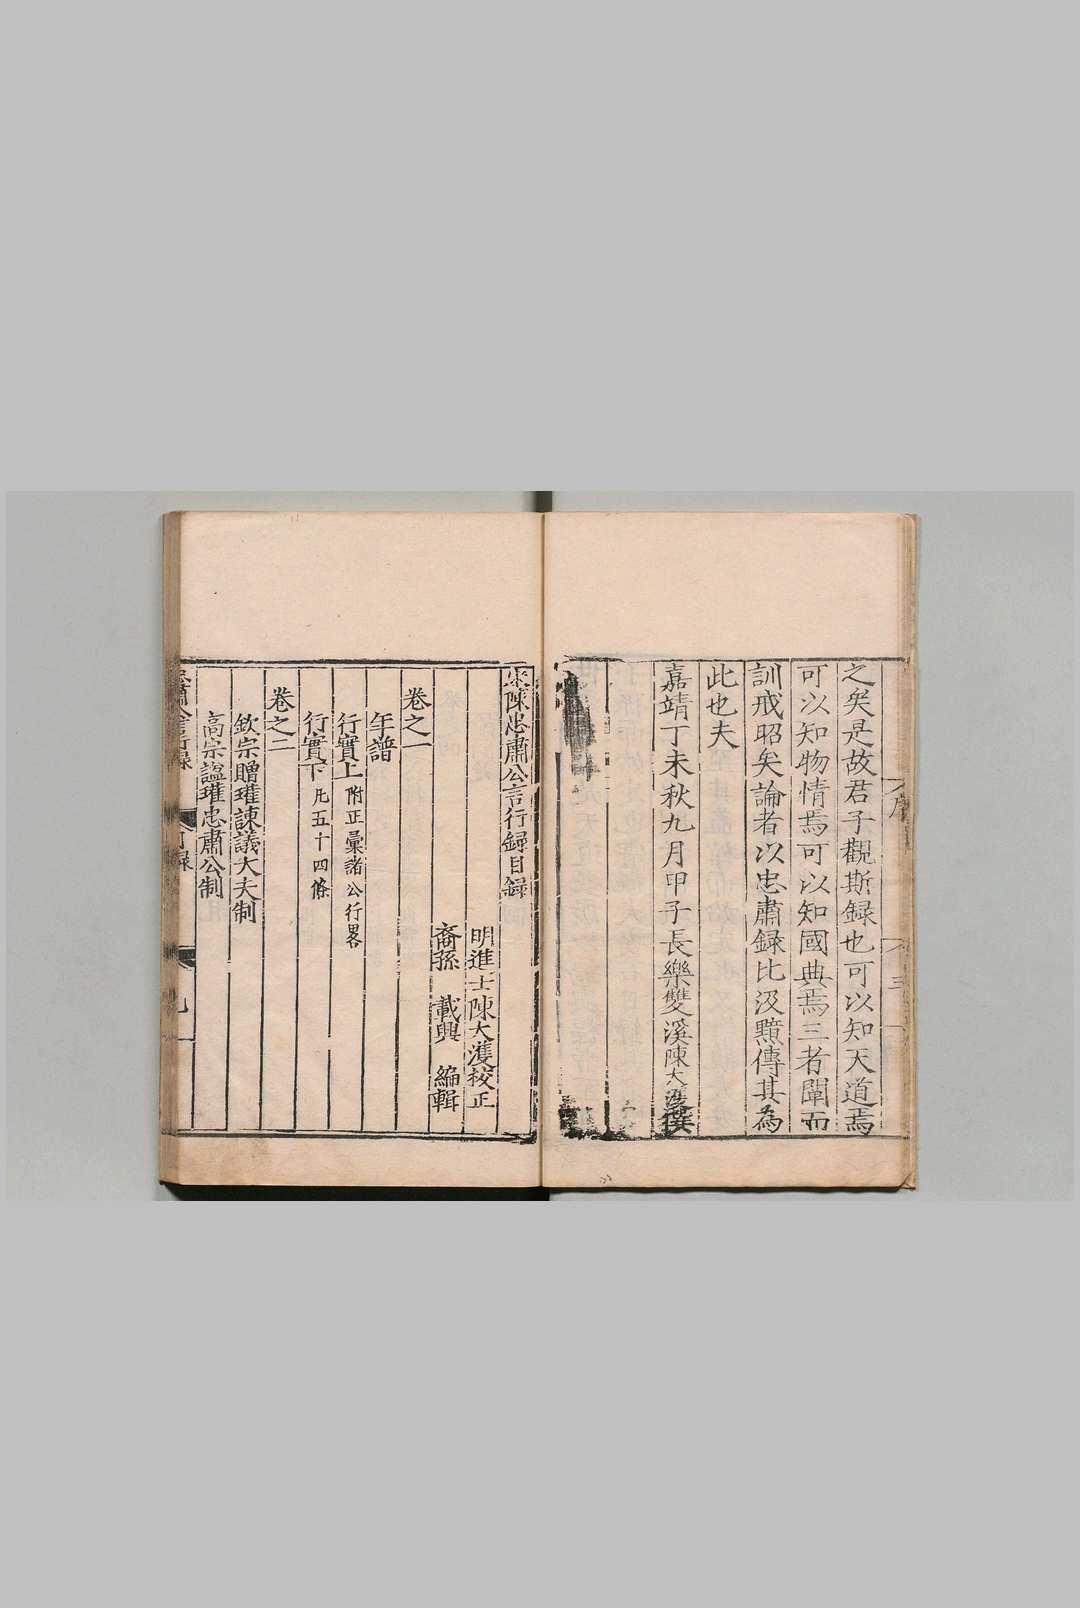 序
三
之矣是故君子觀斯録也可以知天道焉
可以知物情焉可以知國典焉三者闡而
訓戒昭矣論者以忠肅録比汲黯傳其為
此也夫
嘉靖丁未秋九月甲子長樂雙溪陳大濩撰
宋陳忠肅公言行録目録
明進士陳大濩校正
裔孫 載興 編輯
卷之一
年譜
行實上 附正彙諸公行畧
行實下 凡五十四條
卷之二
欽宗贈瓘諫議大夫制
高宗諡瓘忠肅公制
忠肅公言行録 目録 一